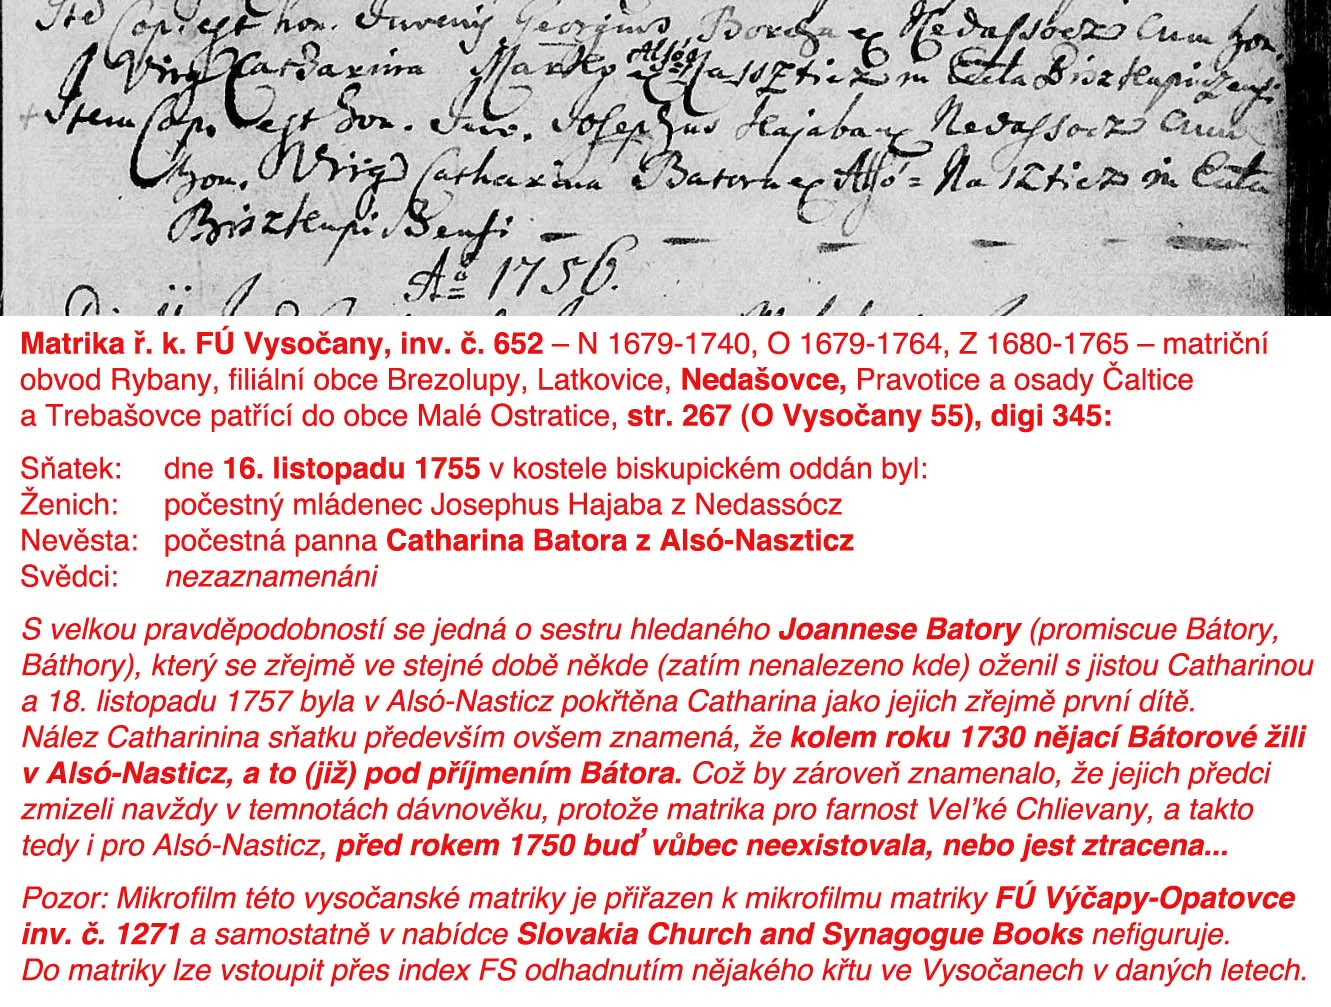 Ite Cop. est hon. Juvenis Georgius Borcza ex Nedassocz Cum hon.
Virg Catharina Marko ex Alsó Naszticz in Eccla Bisztkupiczensi
Item Cop. est hon. Juv. Josephus Hajaba ex Nedassocz Cum
hon. Virg Catharina Batora ex Alsó = Naszticz in Eccla
Bisztkupiczensi
Aō 1756.
Matrika ř. k. FÚ Vysočany, inv. č. 652 – N 1679-1740, O 1679-1764, Z 1680-1765 – matriční
obvod Rybany, filiální obce Brezolupy, Latkovice, Nedašovce, Pravotice a osady Čaltice
a Trebašovce patřící do obce Malé Ostratice, str. 267 (O Vysočany 55), digi 345:
Sňatek: dne 16. listopadu 1755 v kostele biskupickém oddán byl:
Ženich: počestný mládenec Josephus Hajaba z Nedassócz
Nevěsta: počestná panna Catharina Batora z Alsó-Naszticz
Svědci: nezaznamenáni
S velkou pravděpodobností se jedná o sestru hledaného Joannese Batory (promiscue Bátory,
Báthory), který se zřejmě ve stejné době někde (zatím nenalezeno kde) oženil s jistou Catharinou
a 18. listopadu 1757 byla v Alsó-Nasticz pokřtěna Catharina jako jejich zřejmě první dítě.
Nález Catharinina sňatku především ovšem znamená, že kolem roku 1730 nějací Bátorové žili
v Alsó-Nasticz, a to (již) pod příjmením Bátora. Což by zároveň znamenalo, že jejich předci
zmizeli navždy v temnotách dávnověku, protože matrika pro farnost Veľké Chlievany, a takto
tedy i pro Alsó-Nasticz, před rokem 1750 buď vůbec neexistovala, nebo jest ztracena...
Pozor: Mikrofilm této vysočanské matriky je přiřazen k mikrofilmu matriky FÚ Výčapy-Opatovce
inv. č. 1271 a samostatně v nabídce Slovakia Church and Synagogue Books nefiguruje.
Do matriky lze vstoupit přes index FS odhadnutím nějakého křtu ve Vysočanech v daných letech.